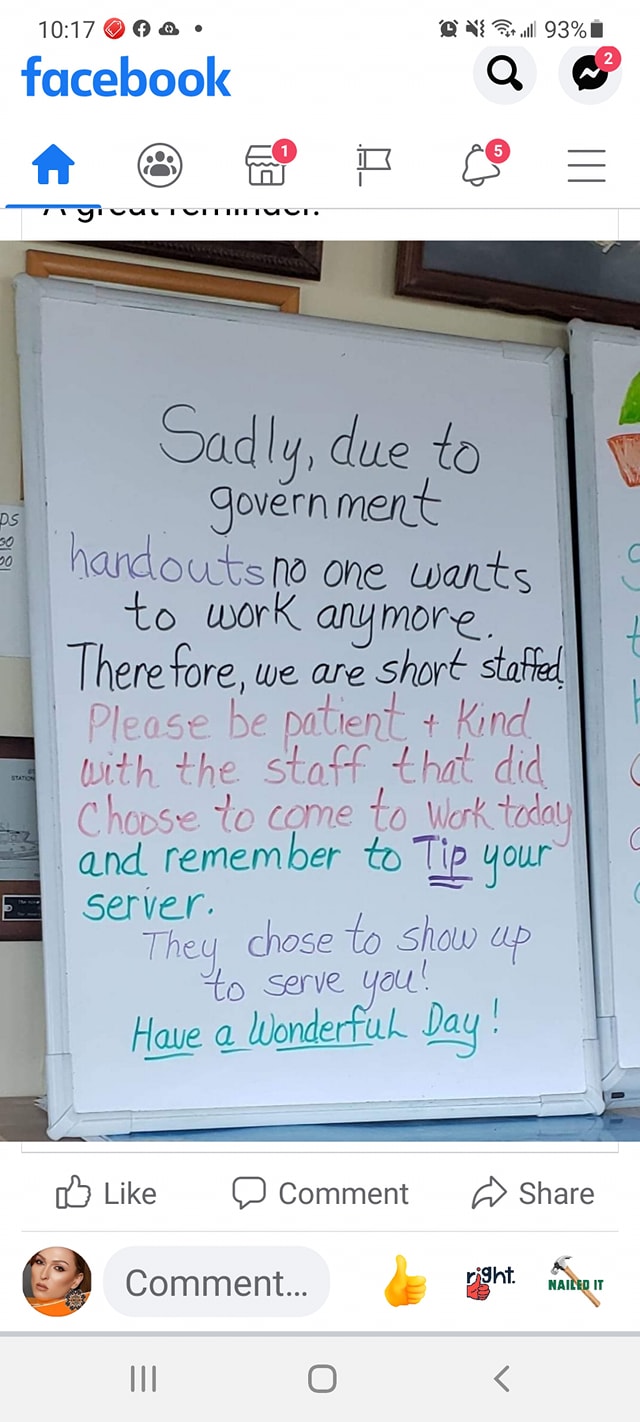 10:17
93%
facebook
2
1
5
A great reminder!
Sadly, due to
government
handouts no one wants
to work anymore.
Therefore, we are short staffed.
Please be patient + Kind
with the staff that did
Choose to come to Work today
and remember to Tip your
server.
They chose to show up
to serve you!
Have a Wonderful Day!
Like
Comment
Share
Comment...
right.
NAILED IT